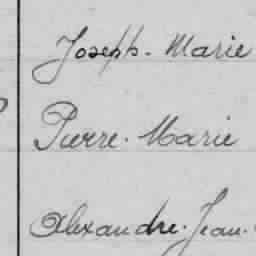 Joseph. Marie
Pierre. Marie
Alexandre. Jean.